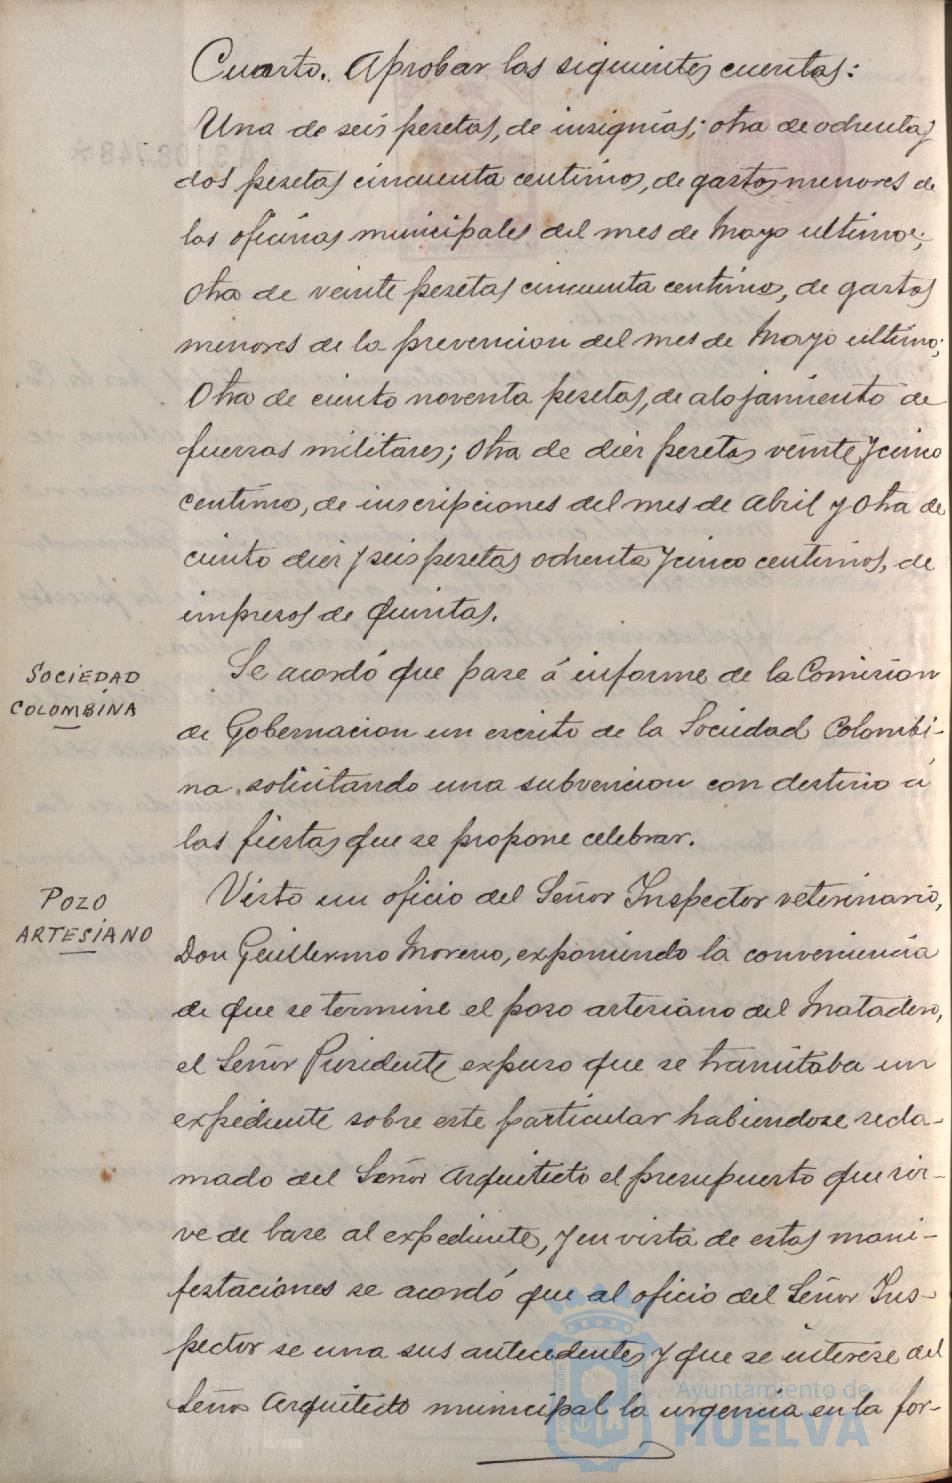 Cuarto. Aprobar las siguientes cuentas:
Una de seis pesetas, de insignias; otra de ochenta y
dos pesetas cincuenta centimos, de gastos menores de
las oficinas municipales del mes de Mayo ultimo;
otra de veinte pesetas cincuenta centimos, de gastos
menores de la prevencion del mes de Mayo ultimo;
Otra de ciento noventa pesetas, de alojamiento de
fuerzas militares; otra de diez pesetas veinte y cinco
centimos, de inscripciones del mes de Abril y otra de
ciento diez y seis pesetas ochenta y cinco centimos, de
impresos de quintas.
SOCIEDAD
COLOMBINA
Se acordó que pase á informe de la Comision
de Gobernacion un escrito de la Sociedad Colombi-
na solicitando una subvencion con destino á
las fiestas que se propone celebrar.
POZO
ARTESIANO
Visto un oficio del Señor Inspector veterinario,
Don Guillermo Moreno, exponiendo la conveniencia
de que se termine el pozo artesiano del Matadero,
el Señor Presidente expuso que se tramitaba un
expediente sobre este particular habiendose recla-
mado del Señor Arquitecto el presupuesto que sir-
ve de base al expediente, y en vista de estas mani-
festaciones se acordó que al oficio del Señor Ins-
pector se una sus antecedentes y que se interese del
Señor Arquitecto municipal la urgencia en la for-
Ayuntamiento de
HUELVA